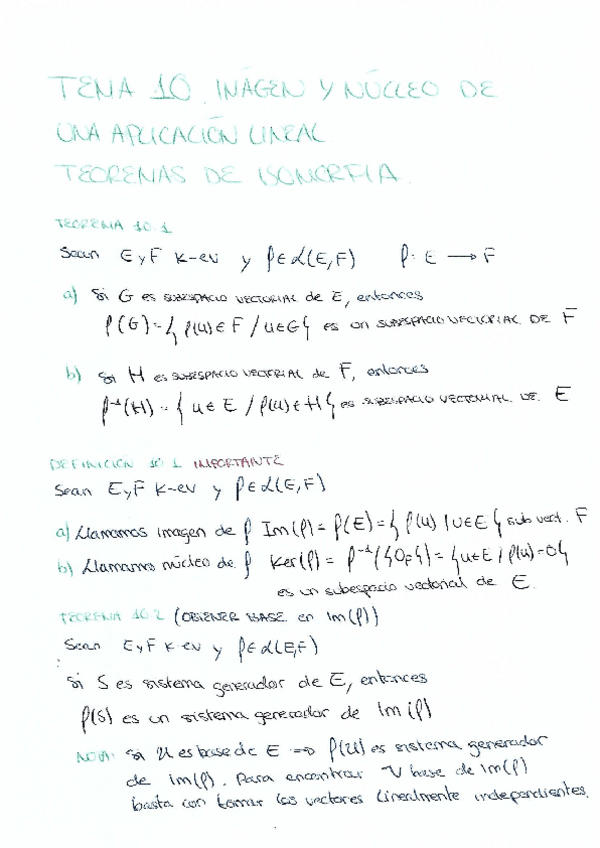 TEMA 10. IMÁGEN Y NÚCLEO DE
UNA APLICACIÓN LINEAL
TEOREMAS DE ISOMORFIA.
TEOREMA 10.1
Sean E y F K-ev y f∈L(E,F) f: E → F
a) Si G es SUBESPACIO VECTORIAL de E, entonces
f(G)={ f(u)∈F / u∈G} es un SUBESPACIO VECTORIAL DE F
b) Si H es SUBESPACIO VECTORIAL de F, entonces
f⁻¹(H)={ u∈E / f(u)∈H} es SUBESPACIO VECTORIAL DE E
DEFINICIÓN 10.1 IMPORTANTE
Sean E y F K-ev y f∈L(E,F)
a) Llamamos imagen de f Im(f)= f(E)={ f(u) / u∈E } sub vect. F
b) Llamamos núcleo de f Ker(f)= f⁻¹({0F})={u∈E / f(u)=0}
es un subespacio vectorial de E.
TEOREMA 10.2 (OBTENER BASE en Im(f))
Sean E y F K-ev y f∈L(E,F)
Si S es sistema generador de E, entonces
f(S) es un sistema generador de Im(f)
NOTA: Si U es base de E ⇒ f(U) es sistema generador
de Im(f). Para encontrar V base de Im(f)
basta con tomar los vectores linealmente independientes.